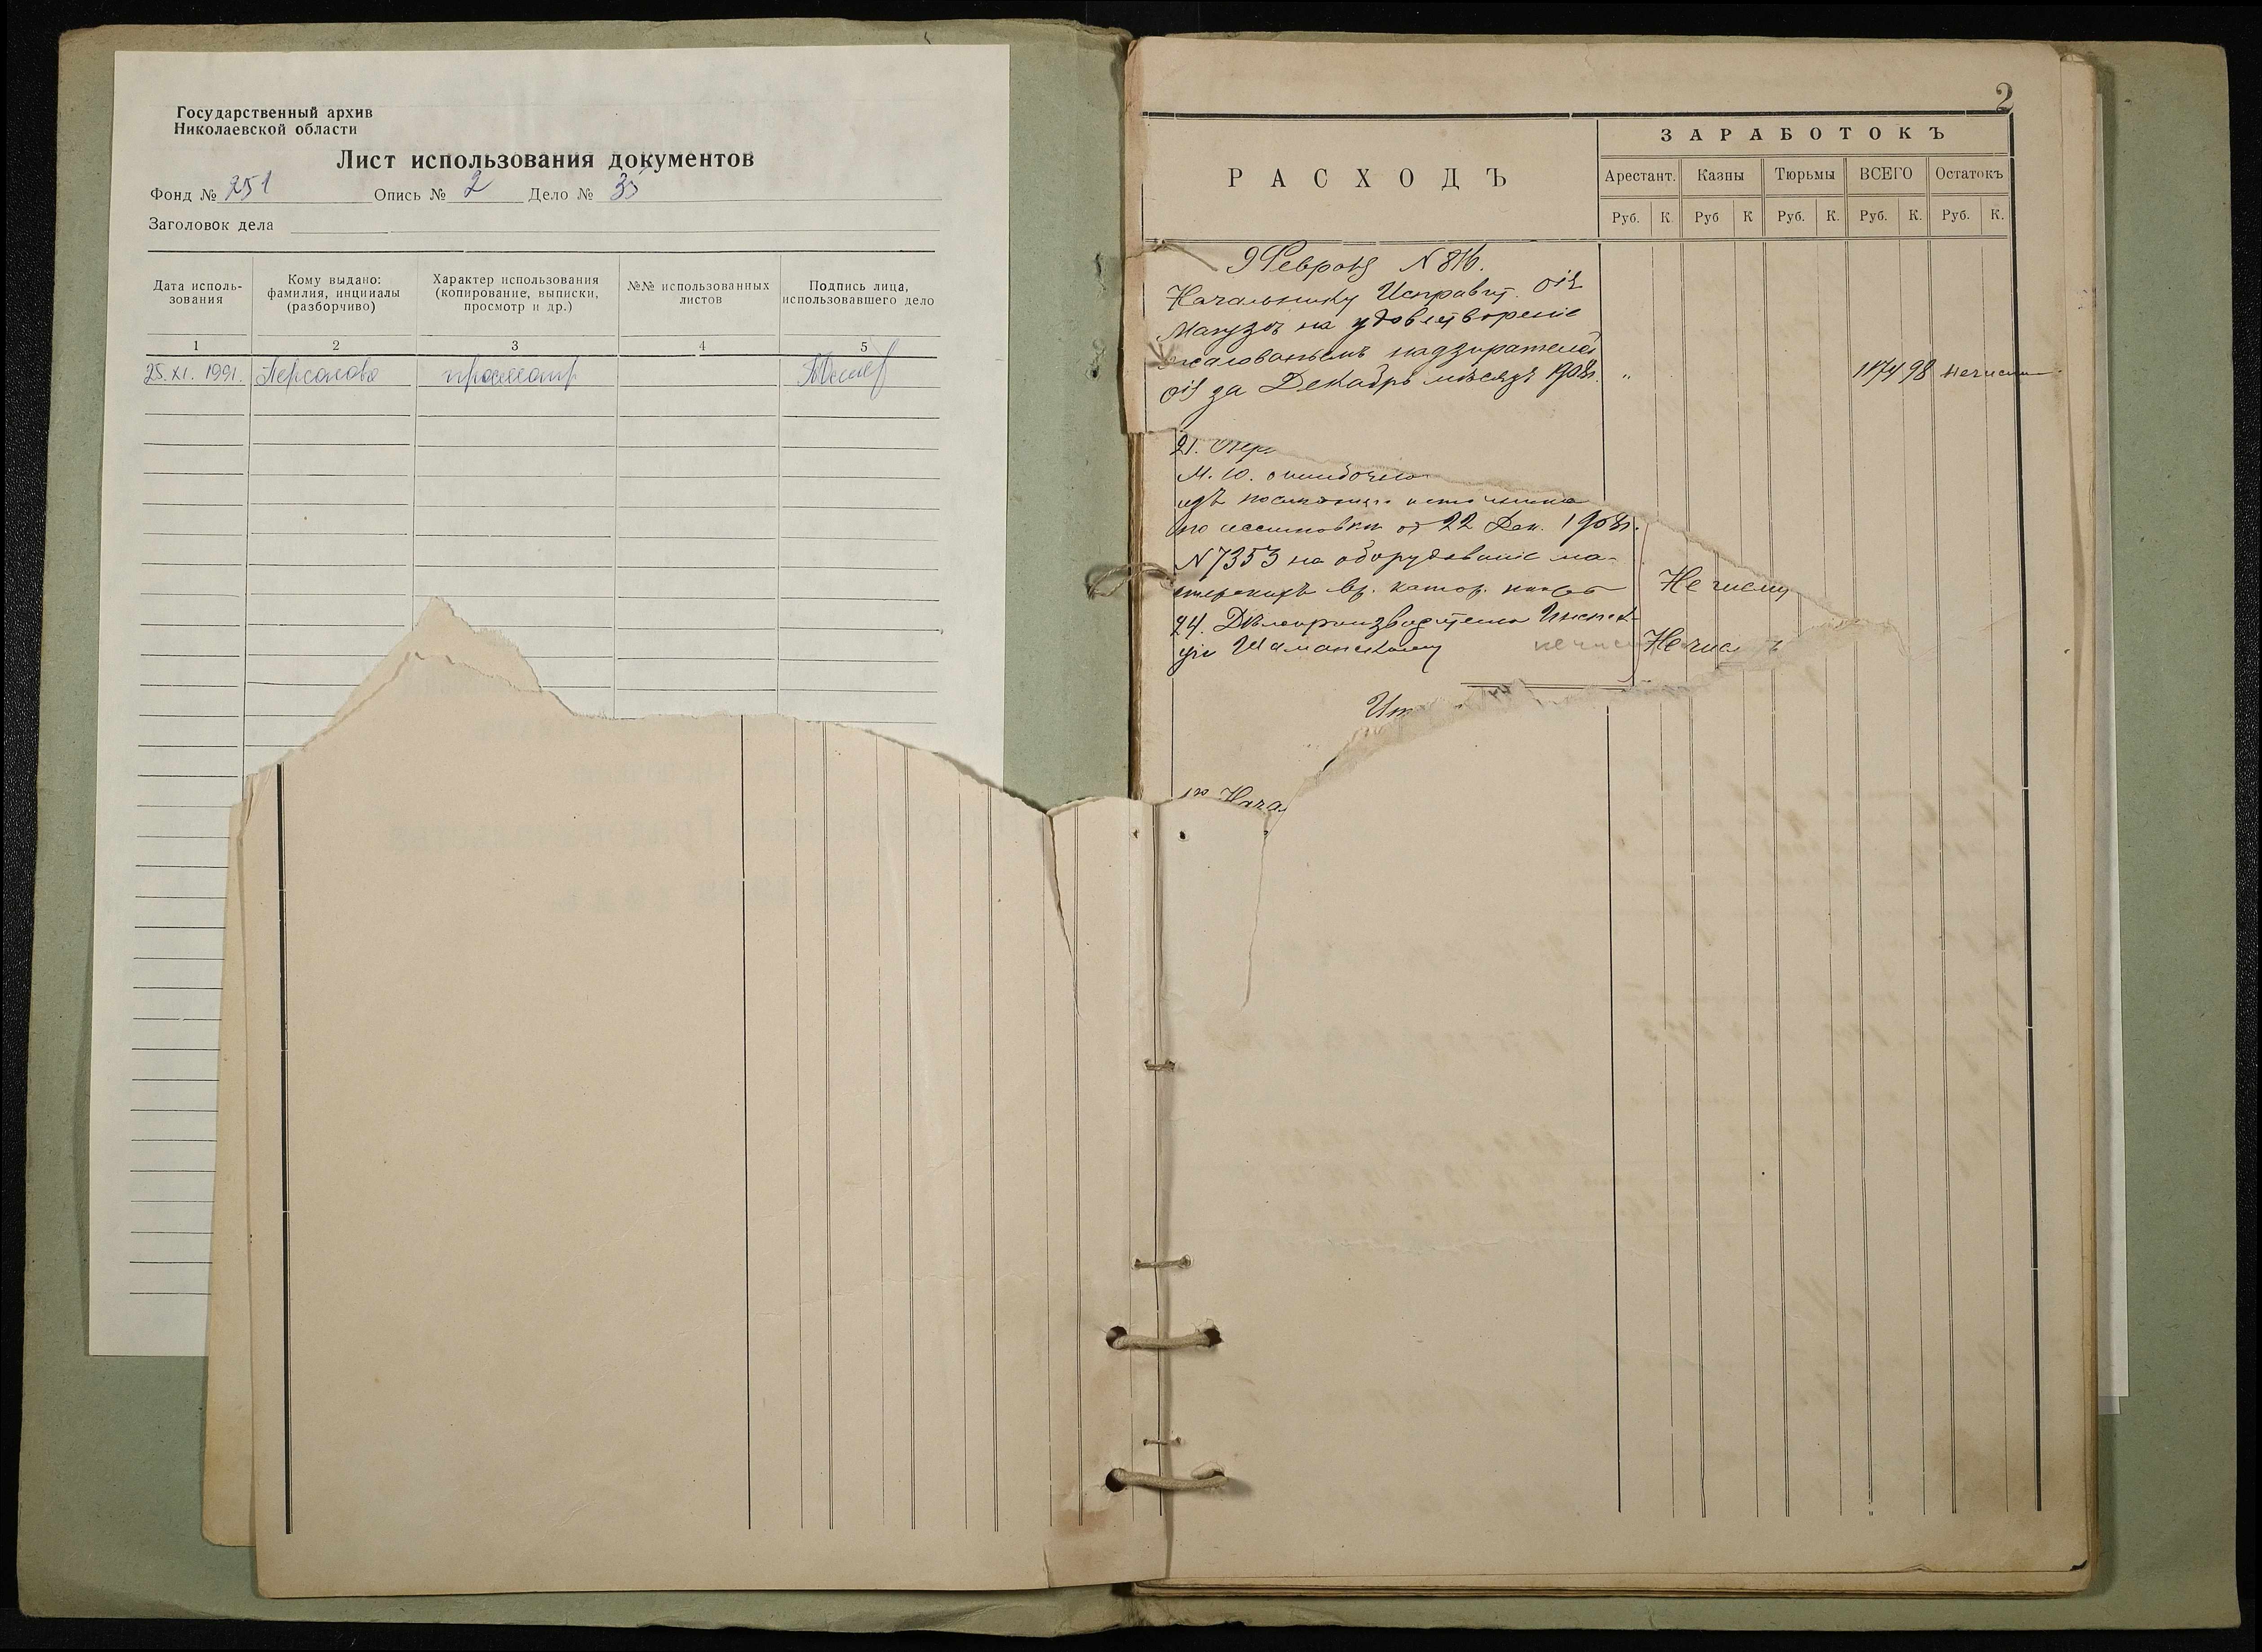 Государственный архив
Николаевской области
Лист использования документов
Фонд № 251 Опись № 2 Дело №
Заголовок дела
Дата исполь-
зования
Кому выдано:
фамилия, инициалы
(разборчиво)
Характер использования
(копирование, выписки,
просмотр и др.)
№№ использованных
листов
Подпись лица,
использовавшего дело
1 2 3 4 5
25. XI. 1991. просмотр
2
РАСХОДЪ
ЗАРАБОТОКЪ
Арестант. Казны Тюрьмы ВСЕГО Остатокъ
Руб. К. Руб К Руб. К. Руб. К. Руб. К.
9 Февраля N 816.
Начальнику Исправит.
на удовлетвореніе
жалованьемъ надзирателей
за Декабрь мѣсяцъ 1908г. " 1174 98
21.
М. Ю. ошибочно
изъ
по ассигновки от 22 Дек. 1908г.
N 7353 на оборудованіе ма-
стерскихъ вр. катор. Не числ
24. Дѣлопроизводителю Инспек-
ціи Шаманскому Не числ
Ит
Нача